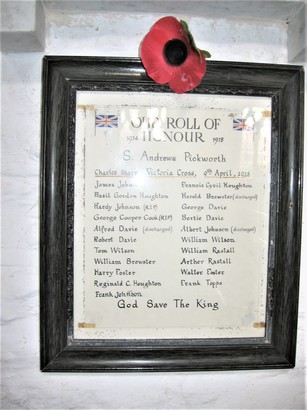 OUR ROLL OF
1914 HONOUR 1918
S. Andrews Pickworth
Charles Victoria Cross, April, 1918
James John
Francis Cyril Houghton
Basil Gordon Houghton
Harold Brewster (discharged)
Hardy Johnson (R.I.P)
George Davie
George Cooper Cook (R.I.P)
Bertie Davie
Alfred Davie (discharged)
Albert Johnson (discharged)
Robert Davie
William Wilson
Tom Wilson
William Rastall
William Brewster
Arthur Rastall
Harry Foster
Walter Foster
Reginald C. Houghton
Frank Topps
Frank Johnson
God Save The King